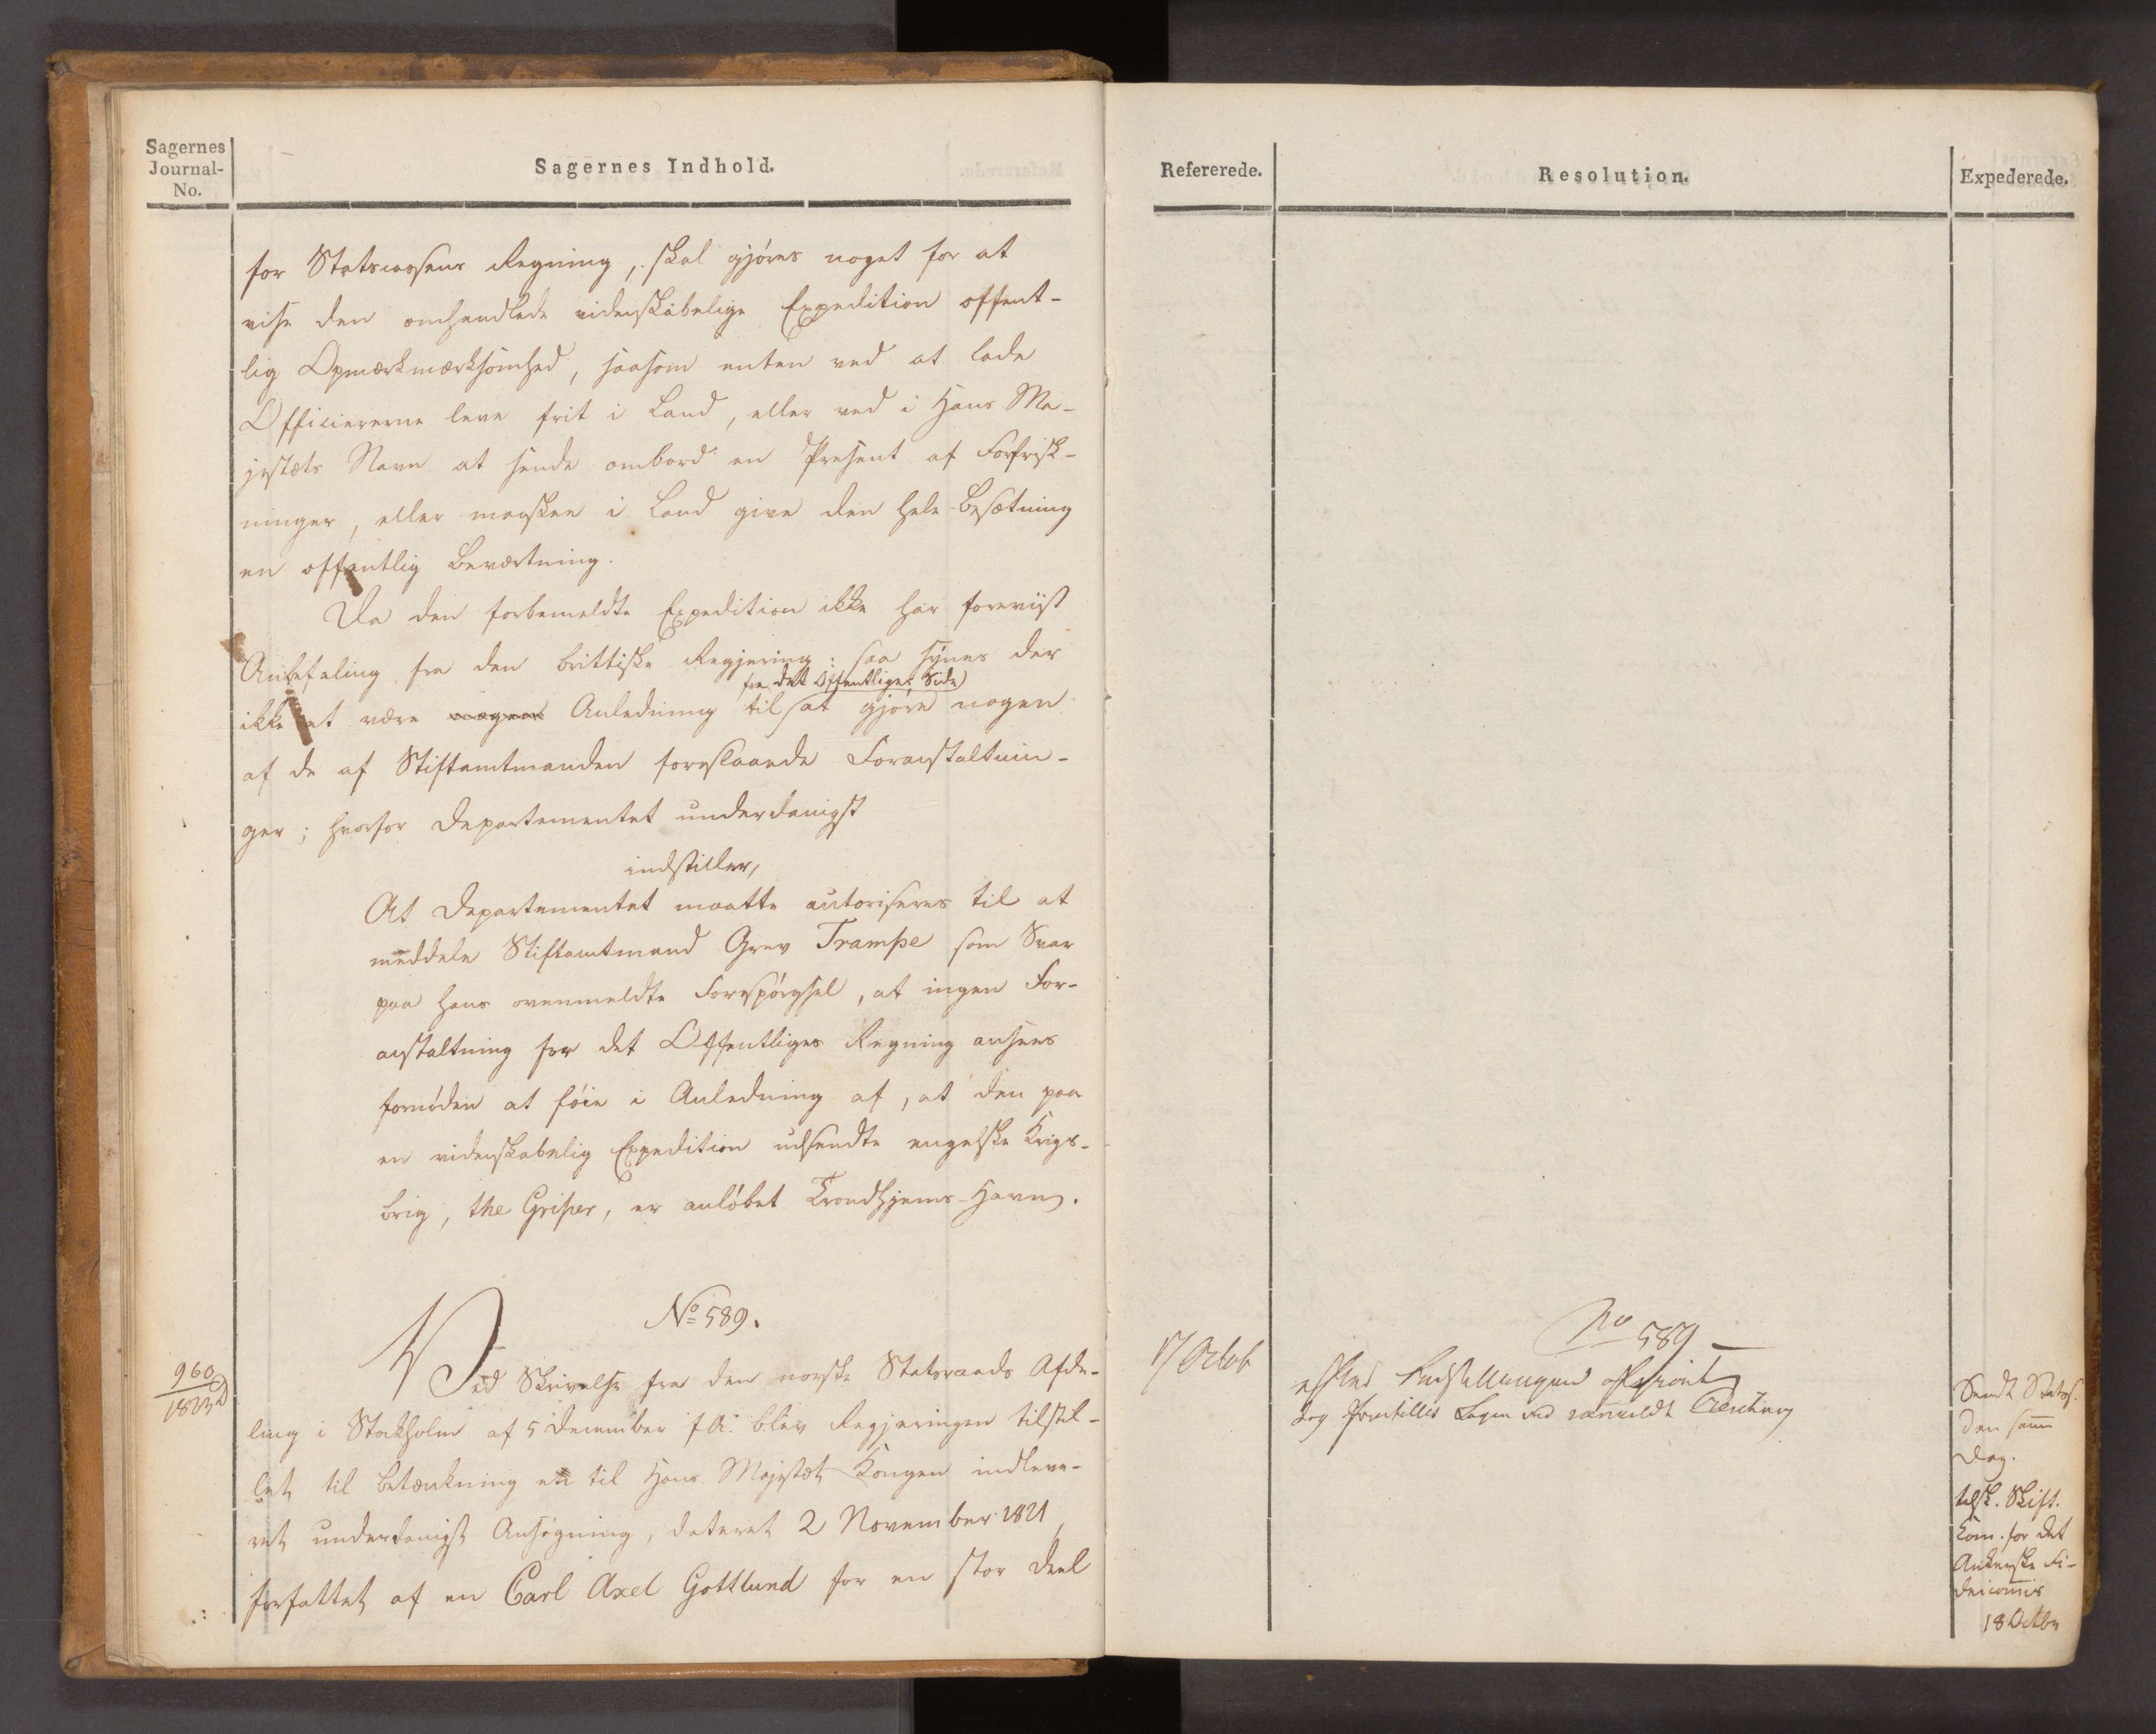 Sagernes
Journal-
No.
Sagernes Indhold.
for Statscassens Regning, skal gjøres noget for at
vise den omhandlede videnskabelige Expedition offent-
lig Opmærkmærksomhed, saasom enten ved at lade
Officiererne leve frit i Land, eller ved i Hans Ma-
jestæts Navn at sende ombord en Present af Forfrisk-
ninger, eller maaskee i Land give den hele Besætning
en offentlig Beværtning.
Da den forbemeldte Expedition ikke har foreviist
Anbefaling fra den brittiske Regjering: saa synes der
fra det Offentliges Side
ikke at være nogen Anledning til at gjøre nogen
af de af Stiftamtmanden foreslaaede Foranstaltnin-
ger; hvorfor Departementet underdanigst
indstiller,
At Departementet maatte autoriseres til at
meddele Stiftamtmand Grev Trampe som Svar
paa hans ovenmeldte Forespørgsel, at ingen For-
anstaltning for det Offentliges Regning ansees
fornøden at føie i Anledning af, at den paa
en videnskabelig Expedition udsendte engelske Krigs-
brig, the Griper, er anløbet Trondhjems-Havn.
No 589.
960
1823 D
Ved Skrivelse fra den norske Statsraads Afde-
ling i Stockholm af 5 December f.A. blev Regjeringen tilstil-
let til Betænkning en til Hans Majestæt Kongen indleve-
ret underdanigst Ansøgning, dateret 2 November 1821,
forfattet af en Carl Axel Gottlund for en stor Deel
Refererede.
Resolution.
Expederede.
17 Octob
No 589
Indstillingen
dog Sagen ved
Sendt Statss.
den samme
Dag.
tilsk. Skift.
Com. for det
Ankerske Fi-
deicomis
18 Octbr